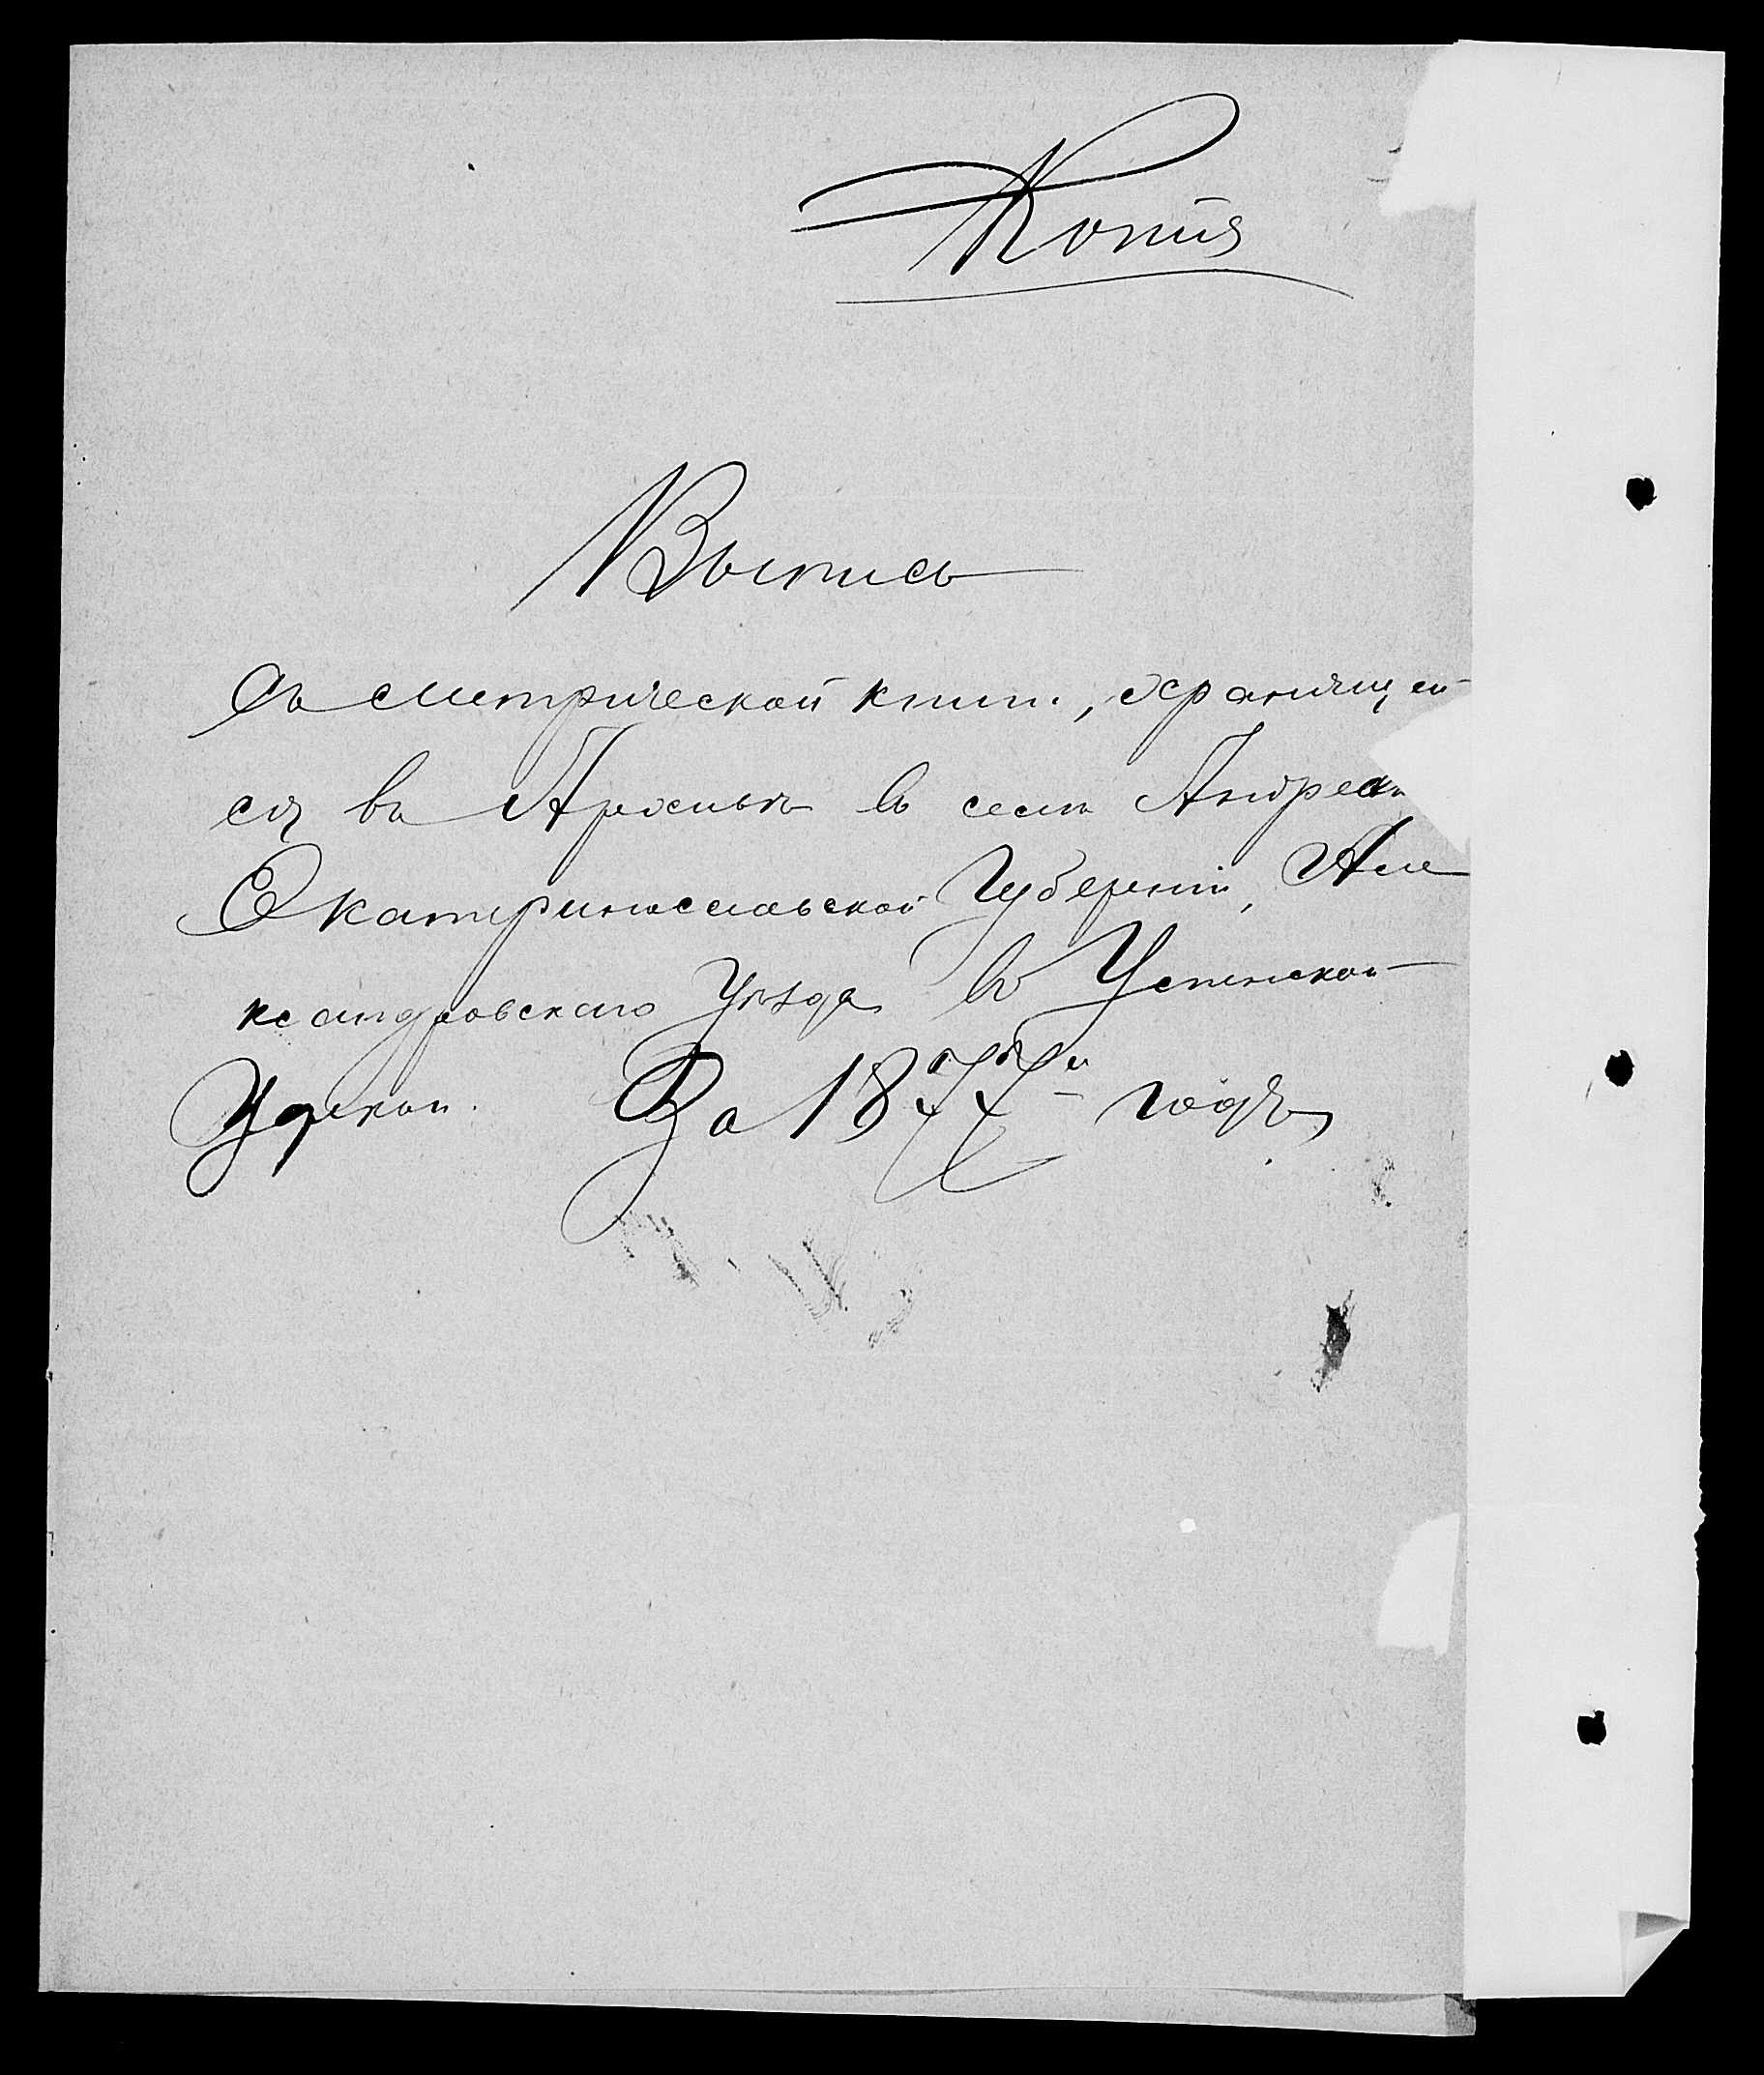 Копія
Выпись
Съ метрической книги, хранящей
ся въ Архивѣ въ селѣ Андрее
Екатеринославской Губерніи, Але
ксандровскаго Уѣзда въ Успенской
Церкви. За 1877й годъ